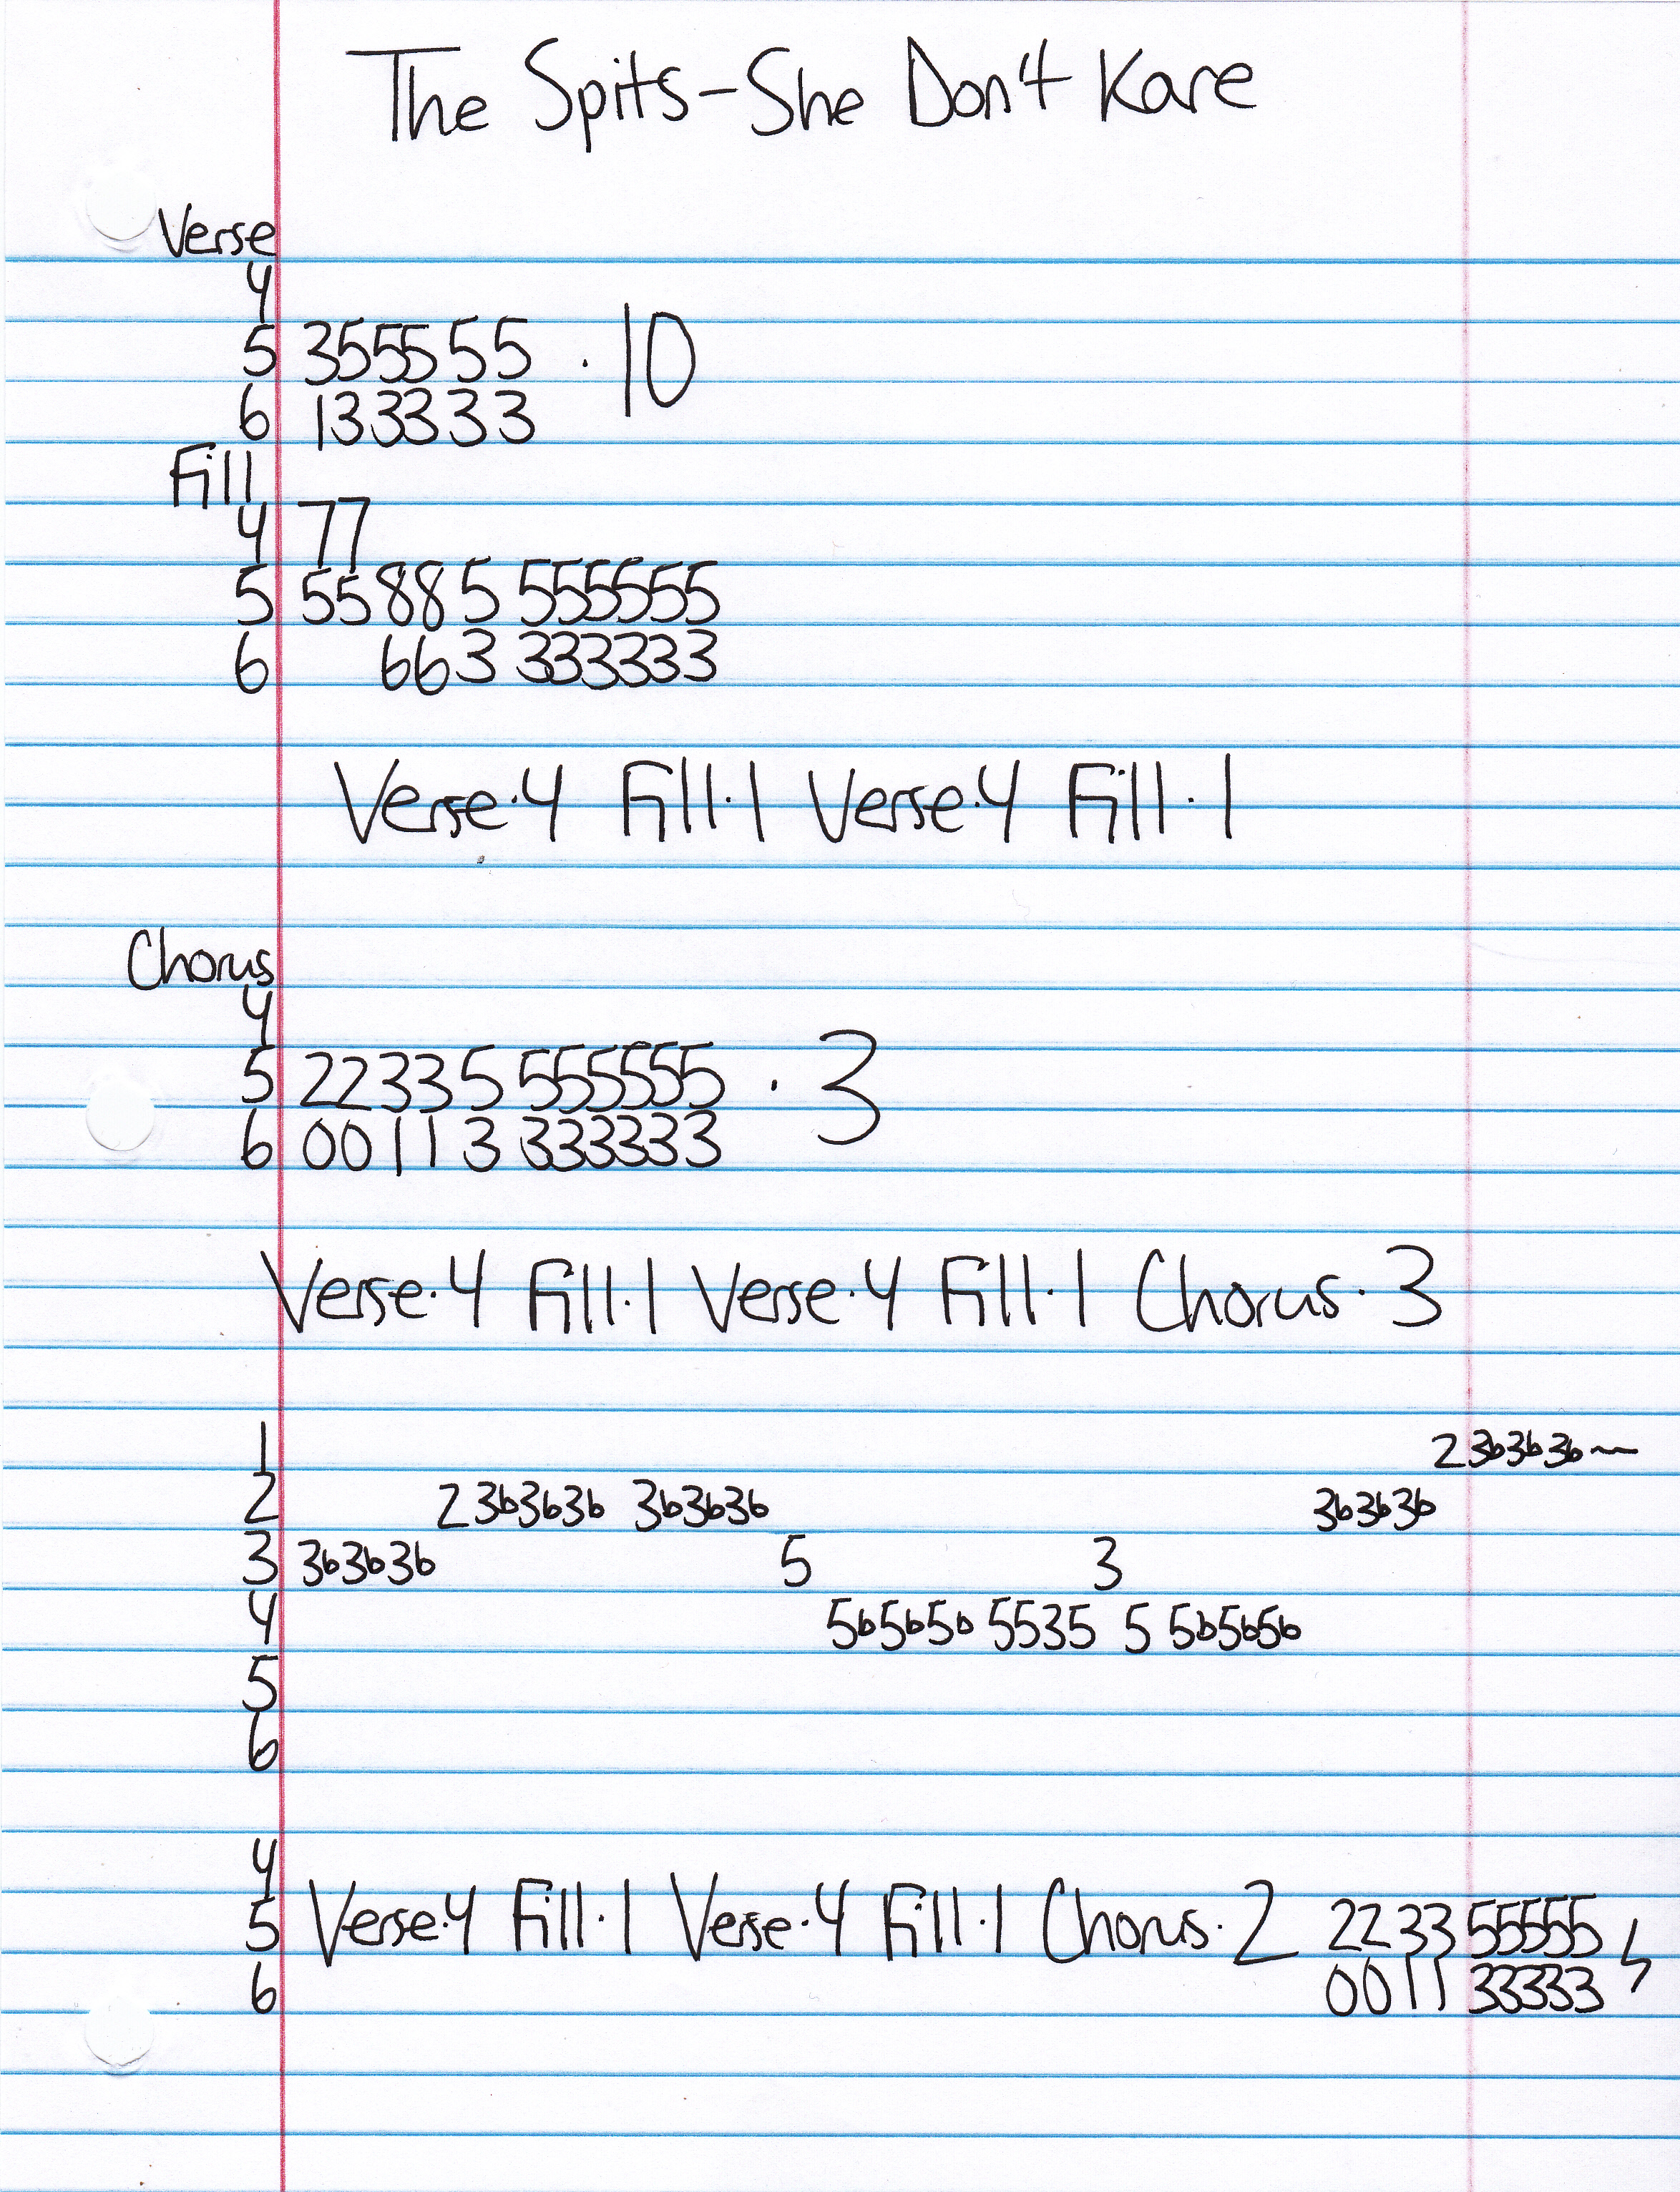 The Spits-She Don't Kare
Verse
4
5 355555 · 10
6 133333
Fill
4 77
5 55885 555555
6 663 333333
Verse·4 Fill·1 Verse·4 Fill·1
Chorus
4
5 22335 555555 · 3
6 00113 333333
Verse·4 Fill·1 Verse·4 Fill·1 Chorus·3
1 2 3b3b3b~
2 2 3b3b3b 3b3b3b 3b3b3b
3 3b3b3b 5 3
4 5b5b5b 5535 5 5b5b5b
5
6
4
5 Verse·4 Fill·1 Verse·4 Fill·1 Chorus·2 2233 55555
6 0011 33333